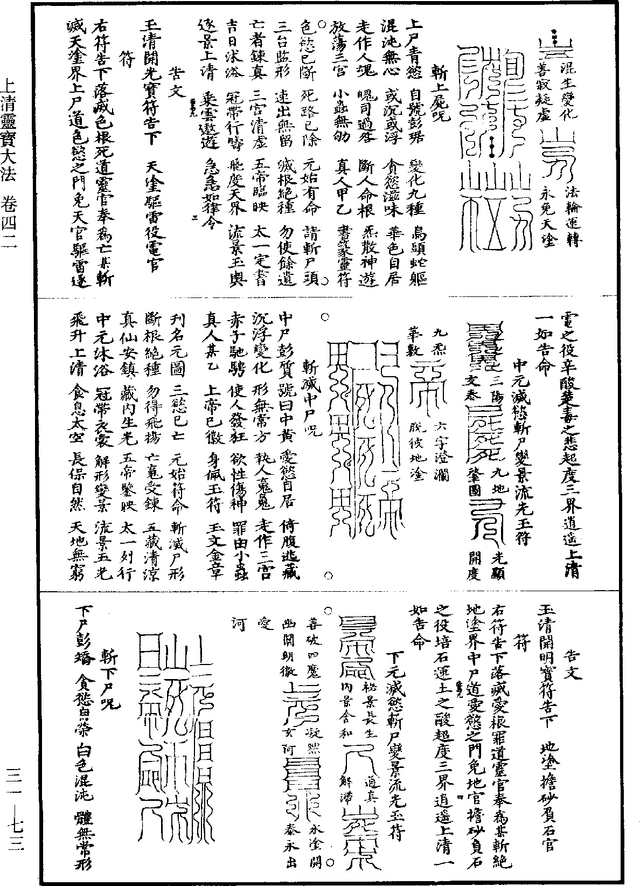 上清靈寶大法　卷四二
三一·七三
混生變化
善寂凝虛
法輪運轉
永免天塗
斬上屍呪
上尸青慾　自號彭琚　變化九種　鳥頭蛇軀
混沌無心　或沉或浮　貪慾滋味　華色自居
走作人魂　魄司過居　斷人命根　炁散神遊
放蕩三宮　小蟲無劬　真人甲乙　靈符
色慾已斷　死路已除　元始有命　請斬尸頭
三台監形　速出無留　滅根絕種　勿使餘遺
亡者鍊真　三宮清虛　五帝臨映　太一定書
吉日沐浴　冠帶行疇　飛度天界　流景玉輿
逐景上清　乘雲遨遊　急急如律令
告文
玉清開光寶符告下　天塗驅雷役電官
符
右符告下落滅色根死道靈官奉為亡某斬
滅天塗界上尸道色慾之門免天官驅雷逐
電之役辛酸楚毒之悲超度三界逍遙上清
一如告命
中元滅慾斬尸變景流光玉符
三陽
九地
光顯
文泰
肇圖
開度
九炁
六字澄瀾
華敷
脫彼地塗
斬滅中尸呪
中尸彭質　號曰中黃　愛慾自居　倚腹逃藏
沉浮變化　形無常方　執人魂魄　走作三宮
赤子馳騁　使人發狂　欲性傷神　罪由小蟲
真人某乙　上帝已徵　身佩玉符　玉文金章
刊名元圖　三慾已亡　元始符命　斬滅尸形
斷根絕種　勿得飛揚　亡魂受鍊　五藏清涼
真仙安鎮　藏內生光　五帝鑒映　太一列行
中元沐浴　冠帶衣裳　解形變景　流景玉光
飛升上清　食息太空　長保自然　天地無窮
告文
玉清開明寶符告下　地塗擔砂負石官
符
右符告下落滅愛根罪道靈官奉為某斬絕
地塗界中尸道愛慾之門免地官擔砂負石
之役培石運土之酸超度三界逍遙上清一
如告命
下元滅慾斬尸變景流光玉符
秘景長生
道真
內景含和
解滯
善破四魔
凝然
永塗開
幽關朗徹
玄河
泰永出
愛
河
斬下尸呪
下尸彭矯　貪慾自榮　白色混沌　體無常形